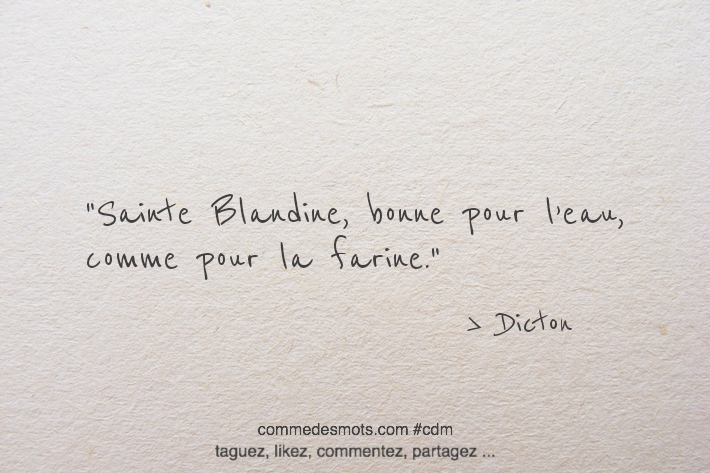 "Sainte Blandine, bonne pour l'eau,
comme pour la farine."
> Dicton
commedesmots.com #cdm
taguez, likez, commentez, partagez ...